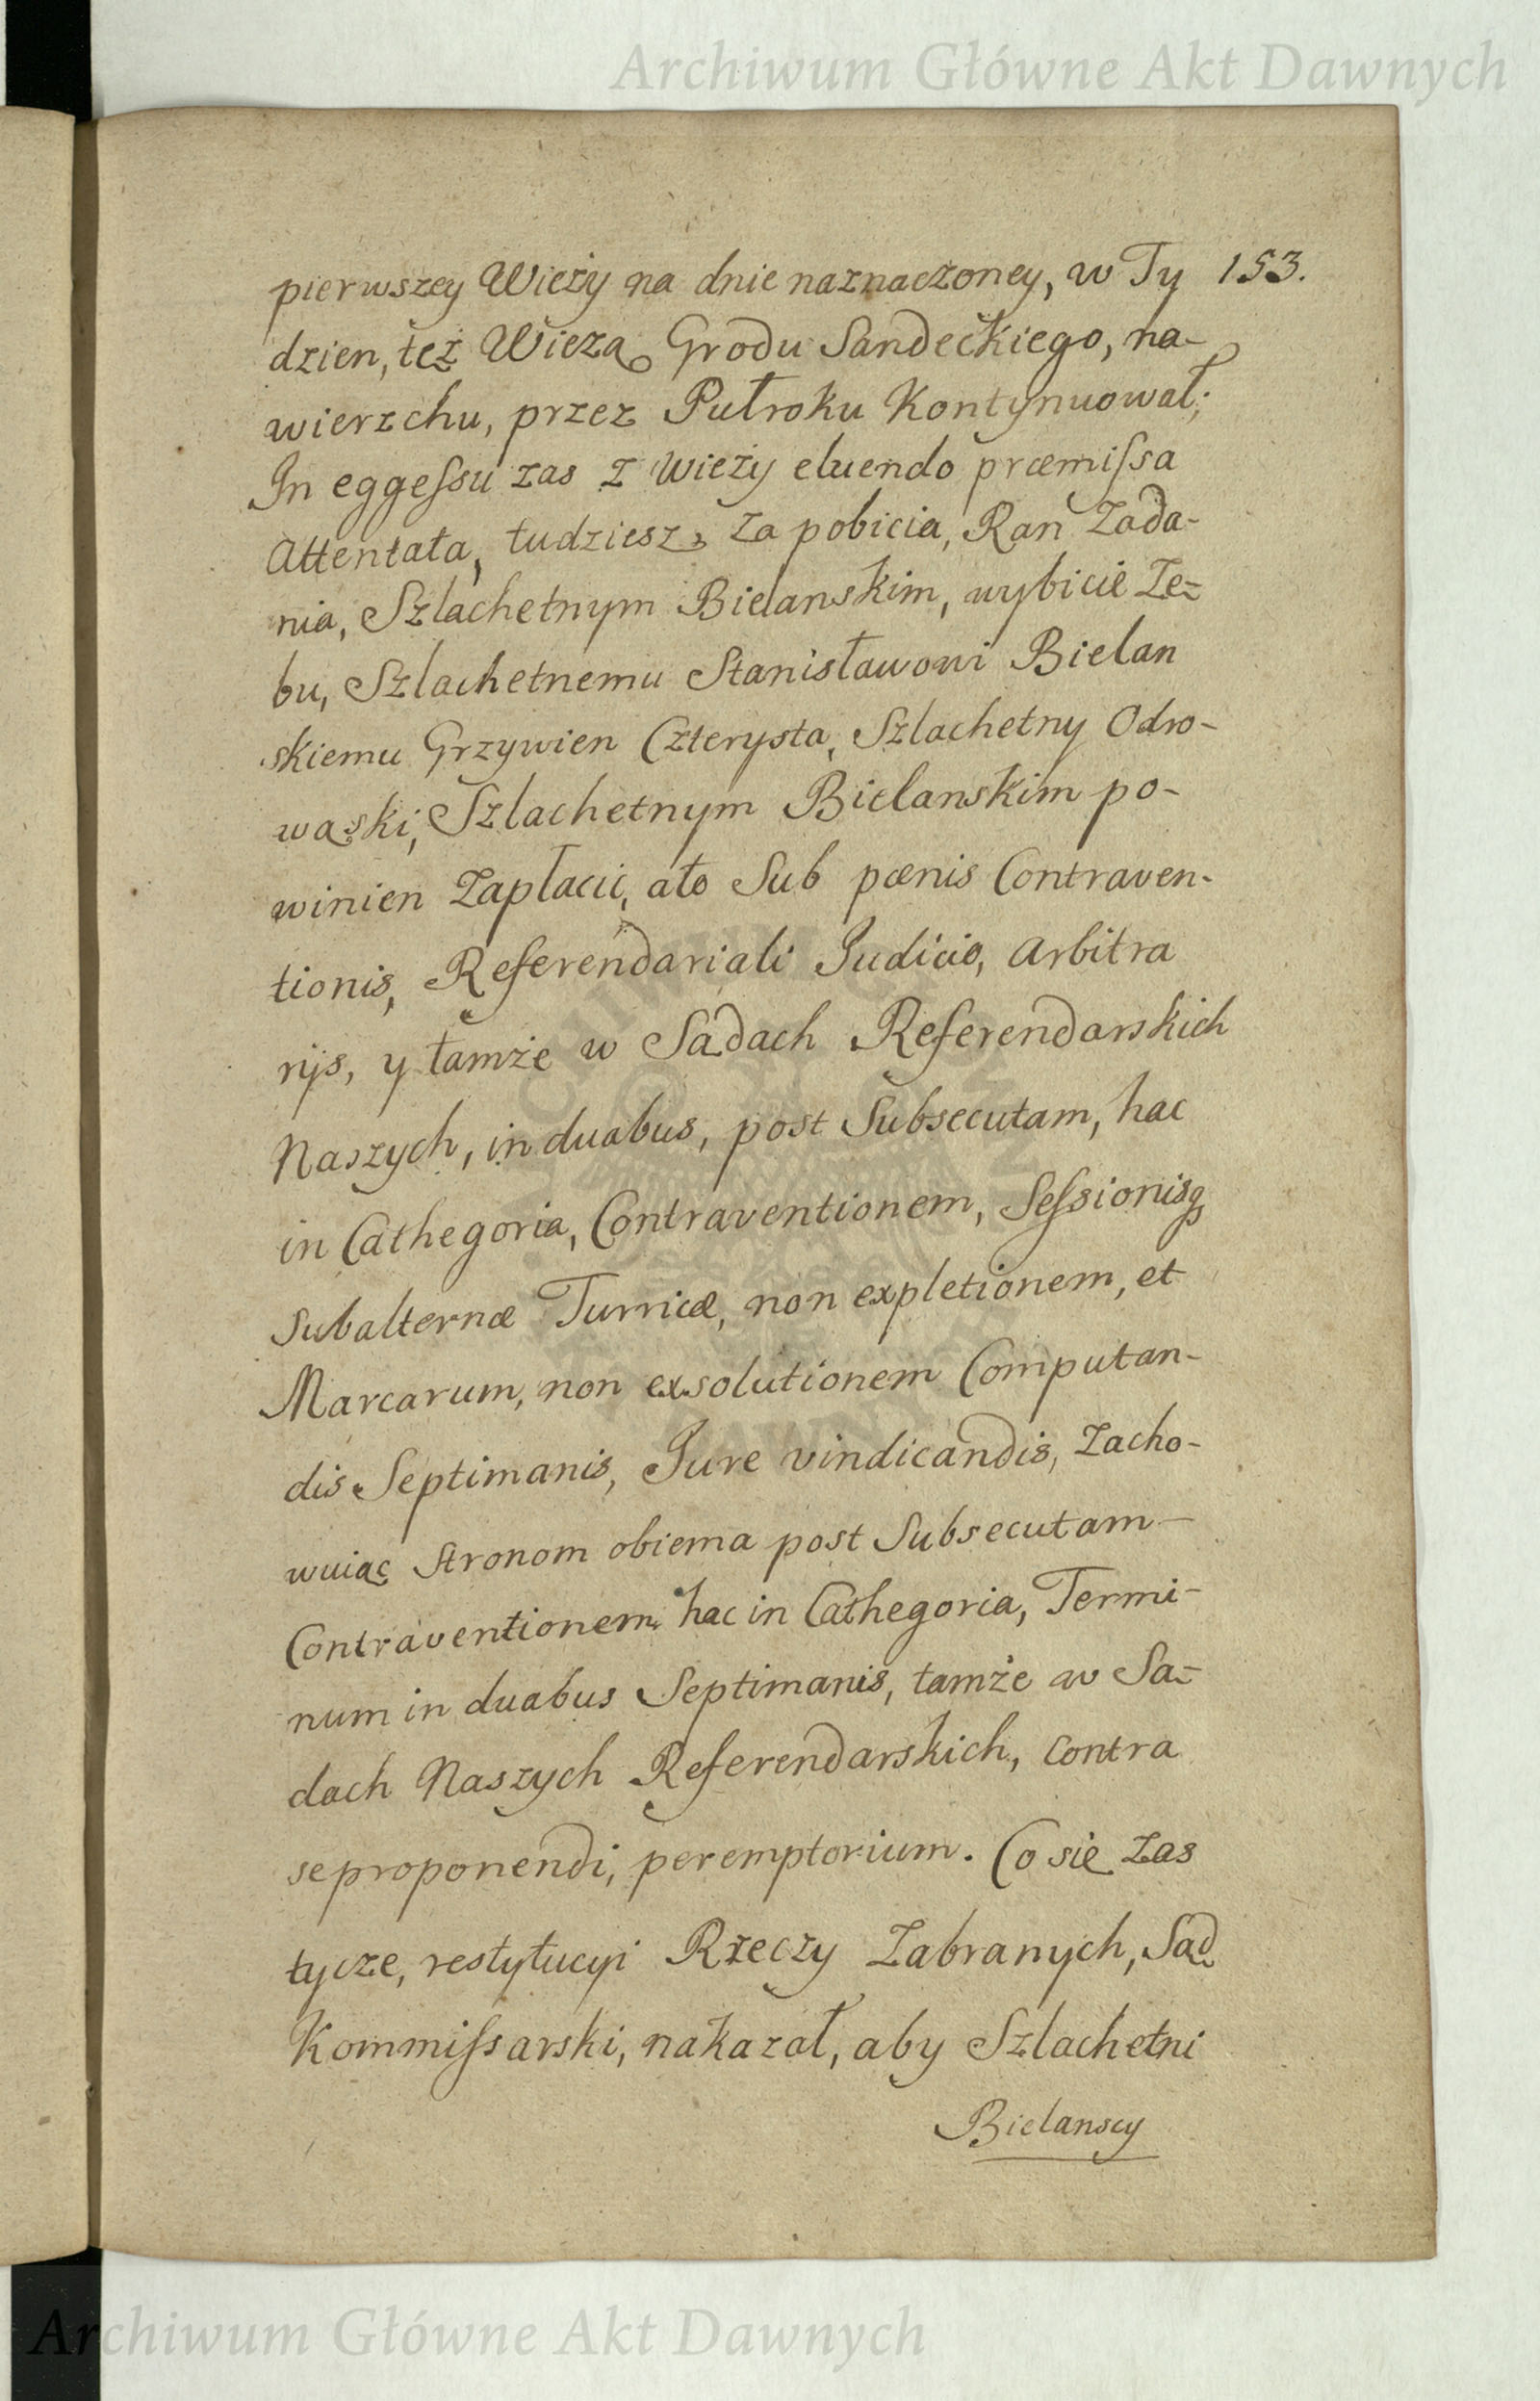 Archiwum Główne Akt Dawnych
pierwszey Wieży na dnie naznaczoney, w Ty 153.
dzien, też Wieżą Grodu Sandeckiego, na-
wierzchu, przez Pułroku Kontynuował;
In eggeſsu zas z Wieży eluendo præmiſsa
Attentata, tudziesz, za pobicia, Ran Zada-
nia, Szlachetnym Bielanskim, wybicie Ze-
bu, Szlachetnemu Stanisławowi Bielan
skiemu Grzywien Czterysta, Szlachetny Odro-
wąski, Szlachetnym Bielanskim po-
winien Zapłacić, ato Sub pœnis Contraven-
tionis, Referendariali Judicio, Arbitra
rijs, y tamże w Sądach Referendarskich
Naszych, in duabus, post Subsecutam, hac
in Cathegoria, Contraventionem, Seſsionisq
subalternæ Turricæ, non expletionem, et
Marcarum, non exsolutionem Computan-
dis Septimanis, Jure vindicandis, Zacho-
wuiąc Stronom obiema post Subsecutam-
Contraventionem hac in Cathegoria, Termi-
num in duabus Septimanis, tamże w Są-
dach Naszych Referendarskich, contra
se proponendi, peremptorium. Co się Zas
tycze, restytucyi Rzeczy Zabranych, Sąd
Kommiſsarski, nakazał, aby Szlachetni
Bielanscy
Archiwum Główne Akt Dawnych